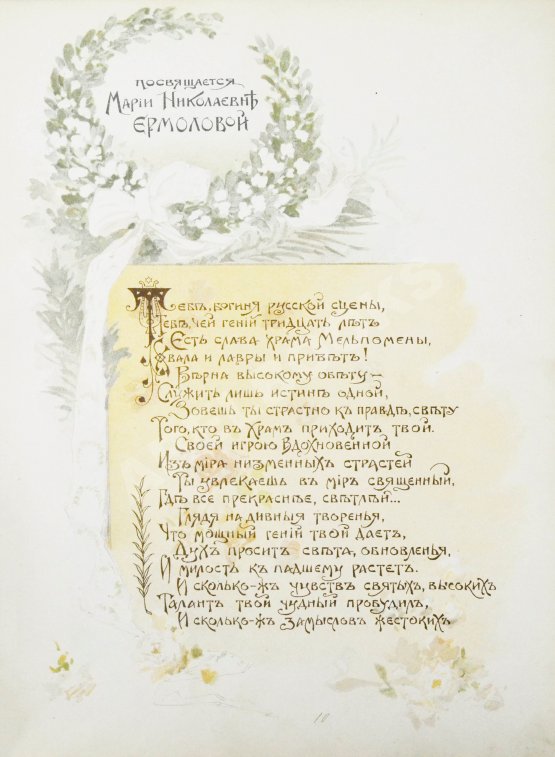 посвящается
Маріи Николаевнѣ
Ермоловой
Тебѣ, богиня русской сцены,
Тебѣ, чей геній тридцать лѣтъ
Есть слава храма Мельпомены,
Хвала и лавры и привѣтъ!
Вѣрна высокому обѣту –
Служить лишь истинѣ одной,
Зовешь ты страстно къ правдѣ, свѣту
Того, кто въ Храмъ приходитъ твой.
Своей игрою вдохновенной
Изъ міра низменныхъ страстей
Ты увлекаешь въ міръ священный,
Гдѣ все прекраснѣе, свѣтлѣй...
Глядя на дивныя творенья,
Что мощный геній твой даетъ,
Духъ проситъ свѣта, обновленья,
И милость къ падшему растетъ.
И сколько-жъ чувствъ святыхъ, высокихъ
Талантъ твой чудный пробудилъ,
И сколько-жъ замысловъ жестокихъ
10